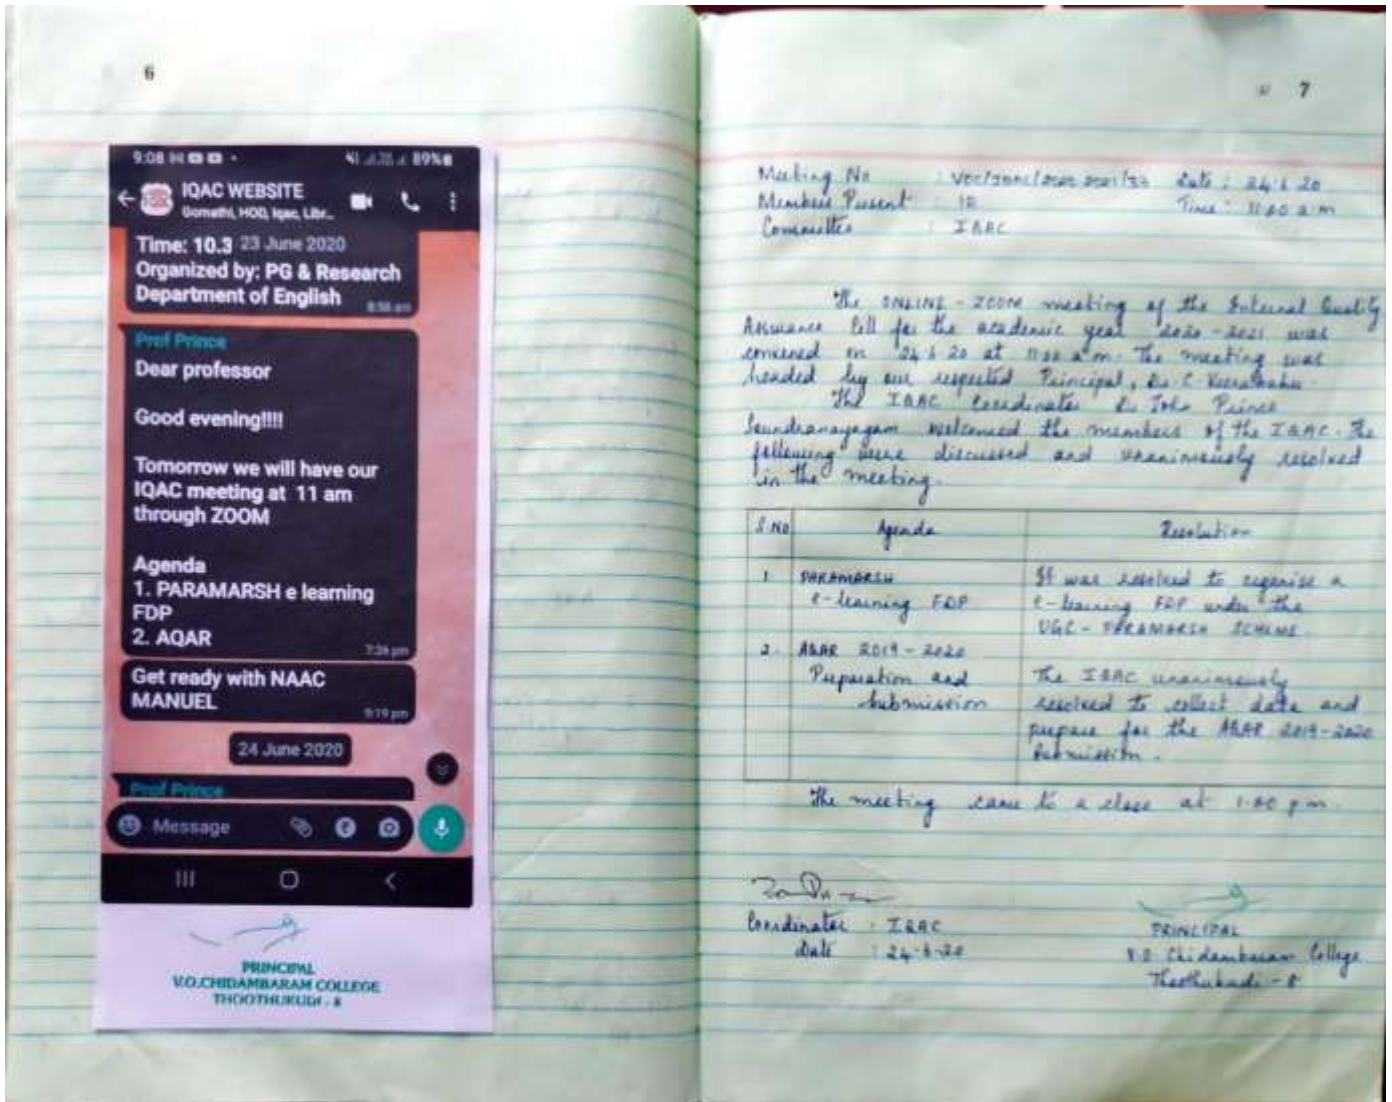 6
9:08
89%
IQAC WEBSITE
Gomathi, HOD, Iqac, Libr...
Time: 10.3 23 June 2020
Organized by: PG & Research
Department of English
8:58 am
Prof Prince
Dear professor
Good evening!!!!
Tomorrow we will have our
IQAC meeting at 11 am
through ZOOM
Agenda
1. PARAMARSH e learning
FDP
2. AQAR
7:26 pm
Get ready with NAAC
MANUEL
9:19 pm
24 June 2020
Prof Prince
Message
PRINCIPAL
V.O.CHIDAMBARAM COLLEGE
THOOTHUKUDI - 8
7
Meeting No : Date : 24.6.20
Members Present : 12 Time : 11.00 a.m
Committee : IQAC
The ONLINE - ZOOM meeting of the Internal Quality
Assurance Cell for the academic year 2020-2021 was
convened on 24.6.20 at 11.00 a.m. The meeting was
headed by our respected Principal, Dr. C. Veerabahu.
The IQAC Coordinator Dr. John Prince
Soundranayagam welcomed the members of the IQAC. The
following were discussed and unanimously resolved
in the meeting.
S.No Agenda Resolution
1. PARAMARSH It was resolved to organise a
e-learning FDP e-learning FDP under the
UGC - PARAMARSH SCHEME.
2. AQAR 2019-2020
Preparation and The IQAC unanimously
Submission resolved to collect data and
prepare for the AQAR 2019-2020
Submission.
The meeting came to a close at 1.00 p.m.
Coordinator : IQAC PRINCIPAL
Date : 24.6.20 V.O. Chidambaram College
Thoothukudi - 8